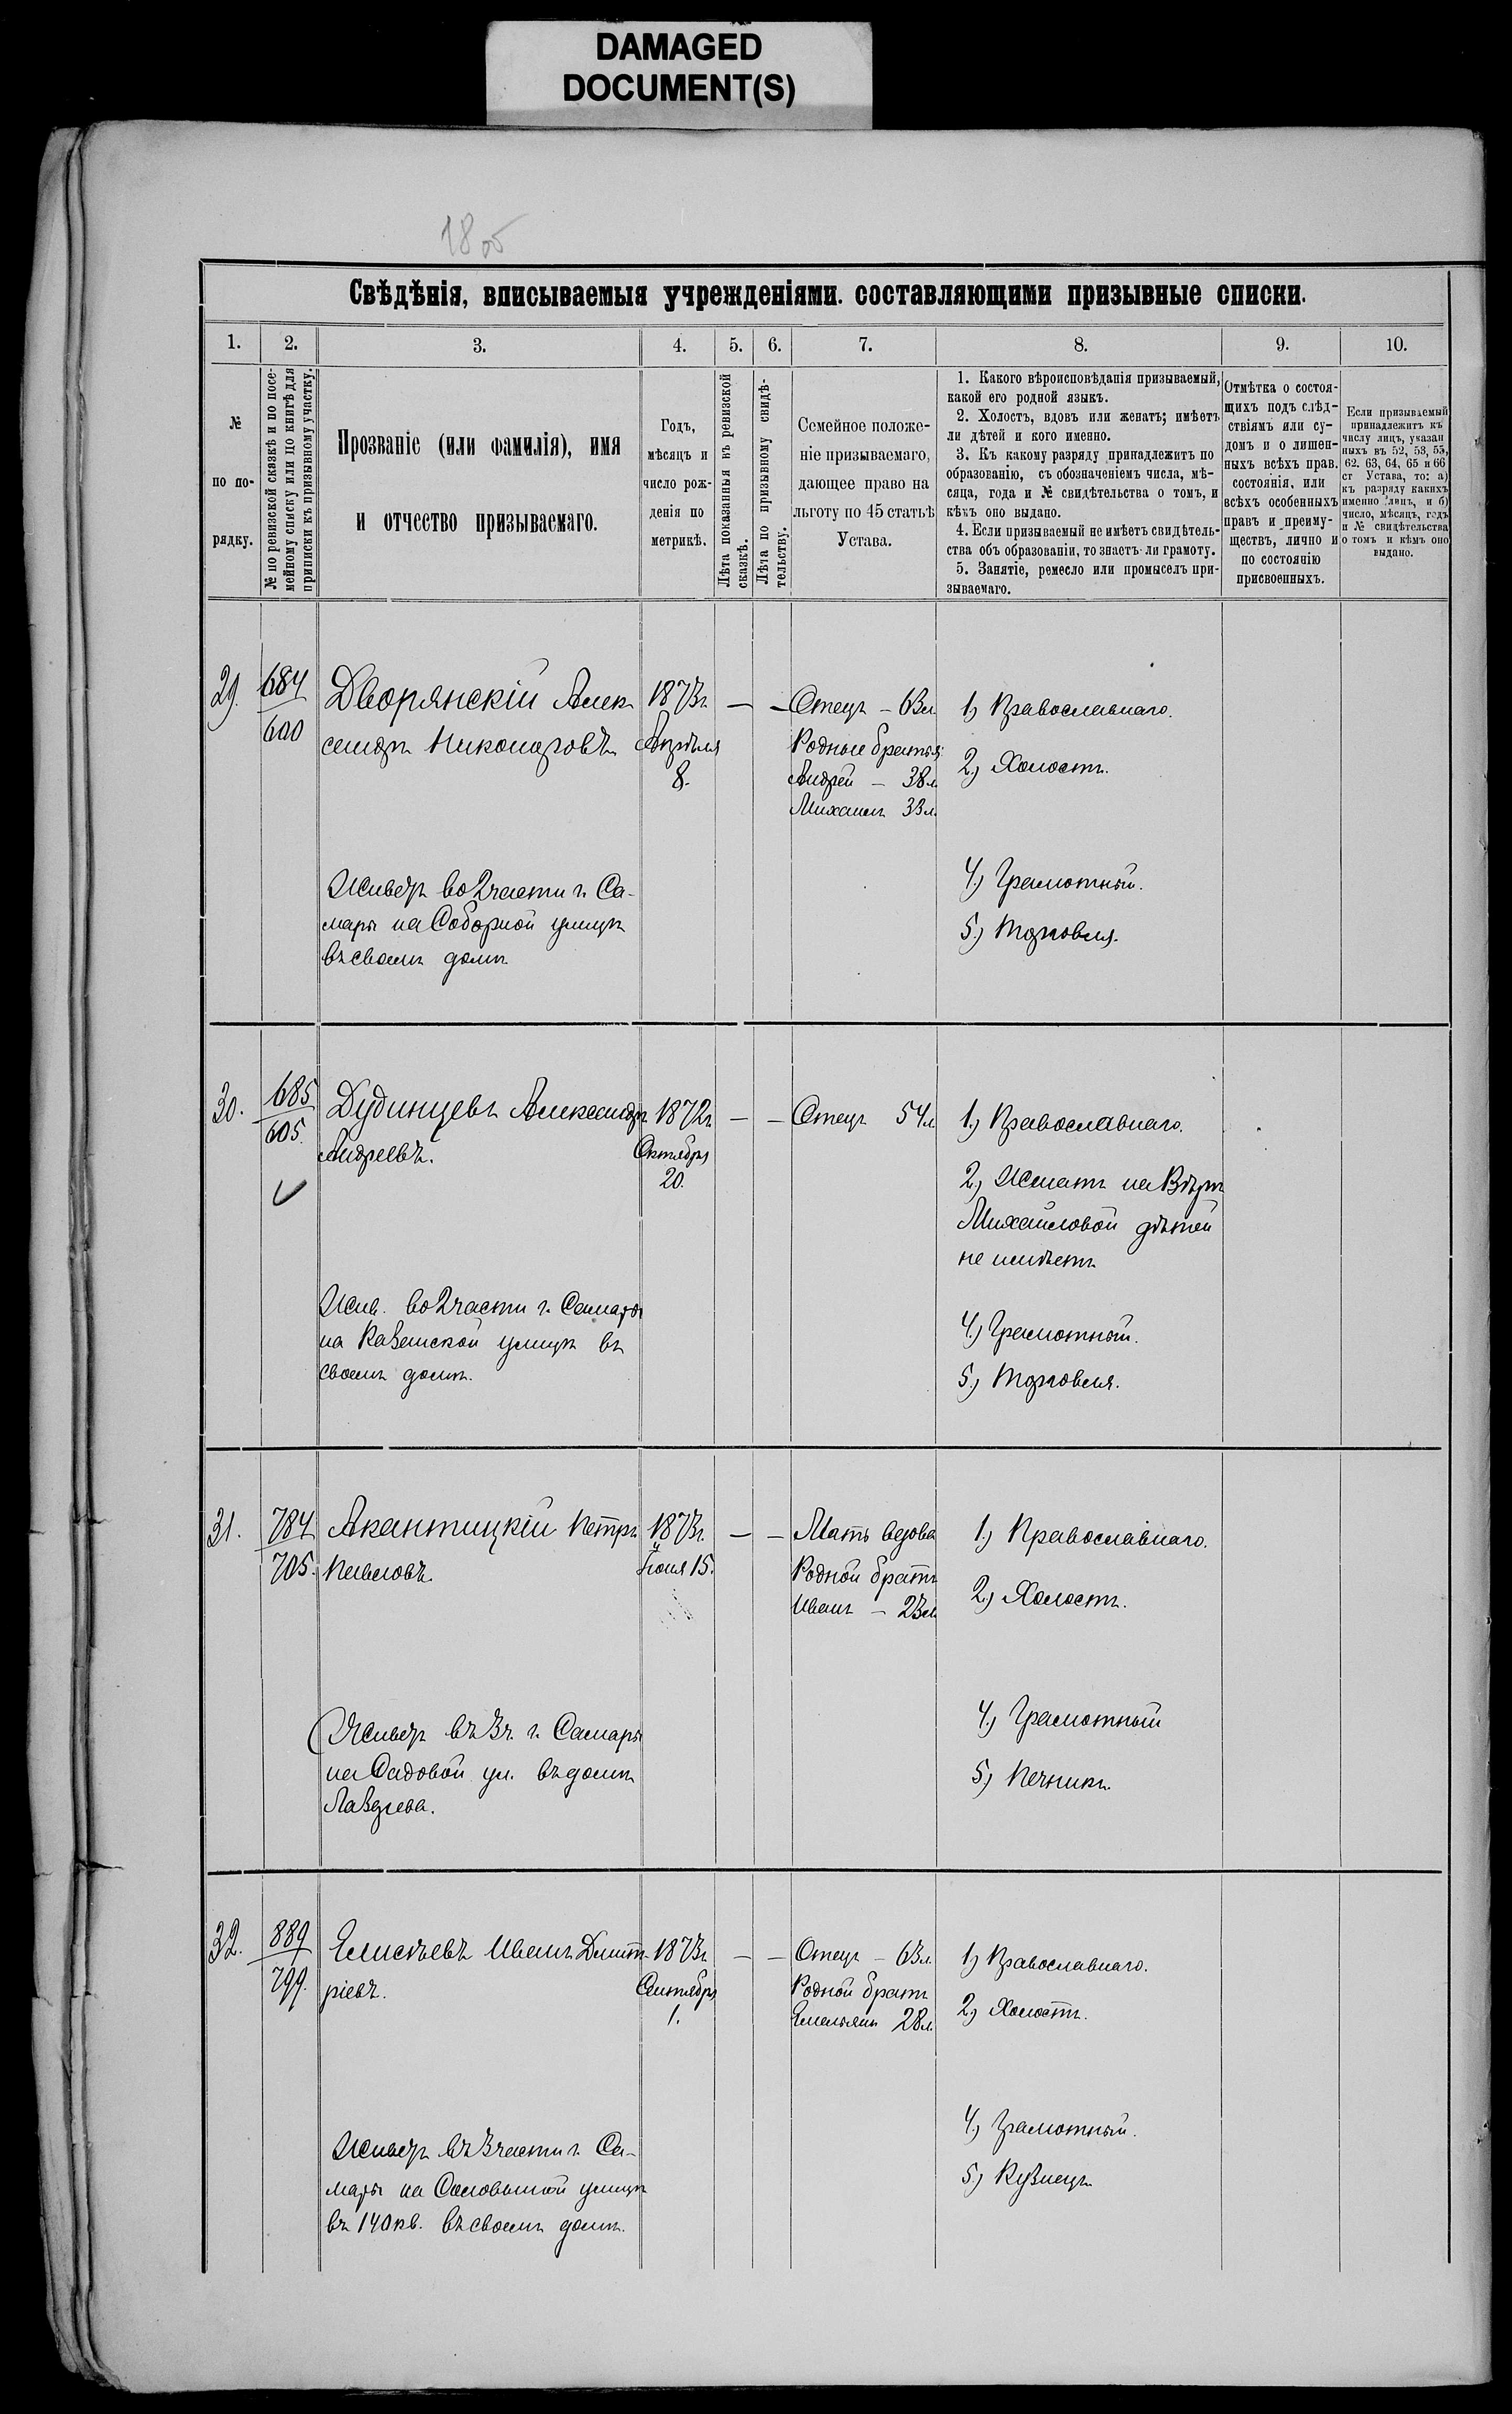 DAMAGED
DOCUMENT(S)
Свѣдѣнія, вписываемыя учрежденіями. составляющими призывные списки.
1. 2. 3. 4. 5. 6. 7. 8. 9. 10.
№
по по-
рядку.
№ по ревизской сказкѣ и по посе-
мейному списку или по книгѣ для
приписки къ призывному участку.
Прозваніе (или фамилія), имя
и отчество призываемаго.
Годъ,
мѣсяцъ и
число рож-
денія по
метрикѣ.
Лѣта показанныя въ ревизской
сказкѣ.
Лѣта по призывному свидѣ-
тельству.
Семейное положе-
ніе призываемаго,
дающее право на
льготу по 45 статьѣ
Устава.
1. Какого вѣроисповѣданія призываемый,
какой его родной языкъ.
2. Холостъ, вдовъ или женатъ; имѣетъ
ли дѣтей и кого именно.
3. Къ какому разряду принадлежитъ по
образованію, съ обозначеніемъ числа, мѣ-
сяца, года и № свидѣтельства о томъ, и
кѣхъ оно выдано.
4. Если призываемый не имѣетъ свидѣтель-
ства объ образованіи, то знаетъ-ли грамоту.
5. Занятіе, ремесло или промыселъ при-
зываемаго.
Отмѣтка о состоя-
щихъ подъ слѣд-
ствіямъ или су-
домъ и о лишен-
ныхъ всѣхъ прав.
состоянія, или
всѣхъ особенныхъ
правъ и преиму-
ществъ, лично и
по состоянію
присвоенныхъ.
Если призываемый
принадлежитъ къ
числу лицъ, указан
ныхъ въ 52, 53, 55,
62. 63, 64, 65 и 66
ст Устава, то: а)
къ разряду какихъ
именно лицъ, и б)
число, мѣсяцъ, годъ
и № свидѣтельства
о томъ и кѣмъ оно
выдано.
29.
684
600
Дворянскій Алек
сандръ Никоноровъ
1873г.
Апрѣля
8.
— —
Отецъ – 63л.
Родные братья:
Андрей – 38л.
Михаилъ 33л.
1) Православнаго.
2) Холостъ.
4.) Грамотный.
5.) Торговля.
Живетъ во 2 части г. Са-
мары на Соборной улицѣ
въ своемъ домѣ
30.
685
605.
Дудинцевъ Александръ
Андреевъ.
1872г.
Октября
20.
— —
Отецъ 54л.
1.) Православнаго.
2.) Женатъ на Вѣрѣ
Михайловой дѣтей
не имѣетъ
4.) Грамотный.
5.) Торговля.
Жив. во 2 части г. Самары
на Казанской улицѣ въ
своемъ домѣ.
31.
784
705.
Акантицкій Петръ
Павловъ.
1873г.
Іюня 15.
— —
Мать вдова
Родной братъ
Иванъ – 23л.
1.) Православнаго.
2.) Холостъ.
4.) Грамотный
5.) Печникъ.
Живетъ въ 3ч. г. Самары
на Садовой ул. въ домѣ
32.
889
799.
Елисѣевъ Иванъ Дмит-
ріевъ.
1873г.
Сентября
1.
— —
Отецъ – 63л.
Родной братъ
Емельянъ 28л.
1.) Православнаго.
2.) Холостъ.
4.) Грамотный.
5.) Кузнецъ
Живетъ въ 3 части г. Са-
мары на улицѣ
въ 140 кв. въ своемъ домѣ.